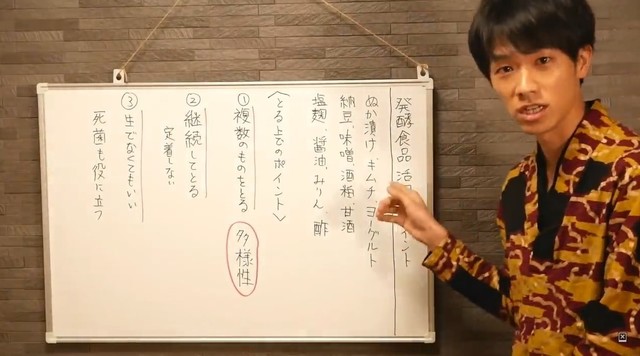 発酵食品 活 イント
ぬか漬け、キムチ、ヨーグルト
納豆、味噌、酒粕、甘酒
塩麹、醤油、みりん、酢
〈とる上でのポイント〉
①複数のものをとる 多様性
②継続してとる
定着しない
③生でなくてもいい
死菌も役に立つ